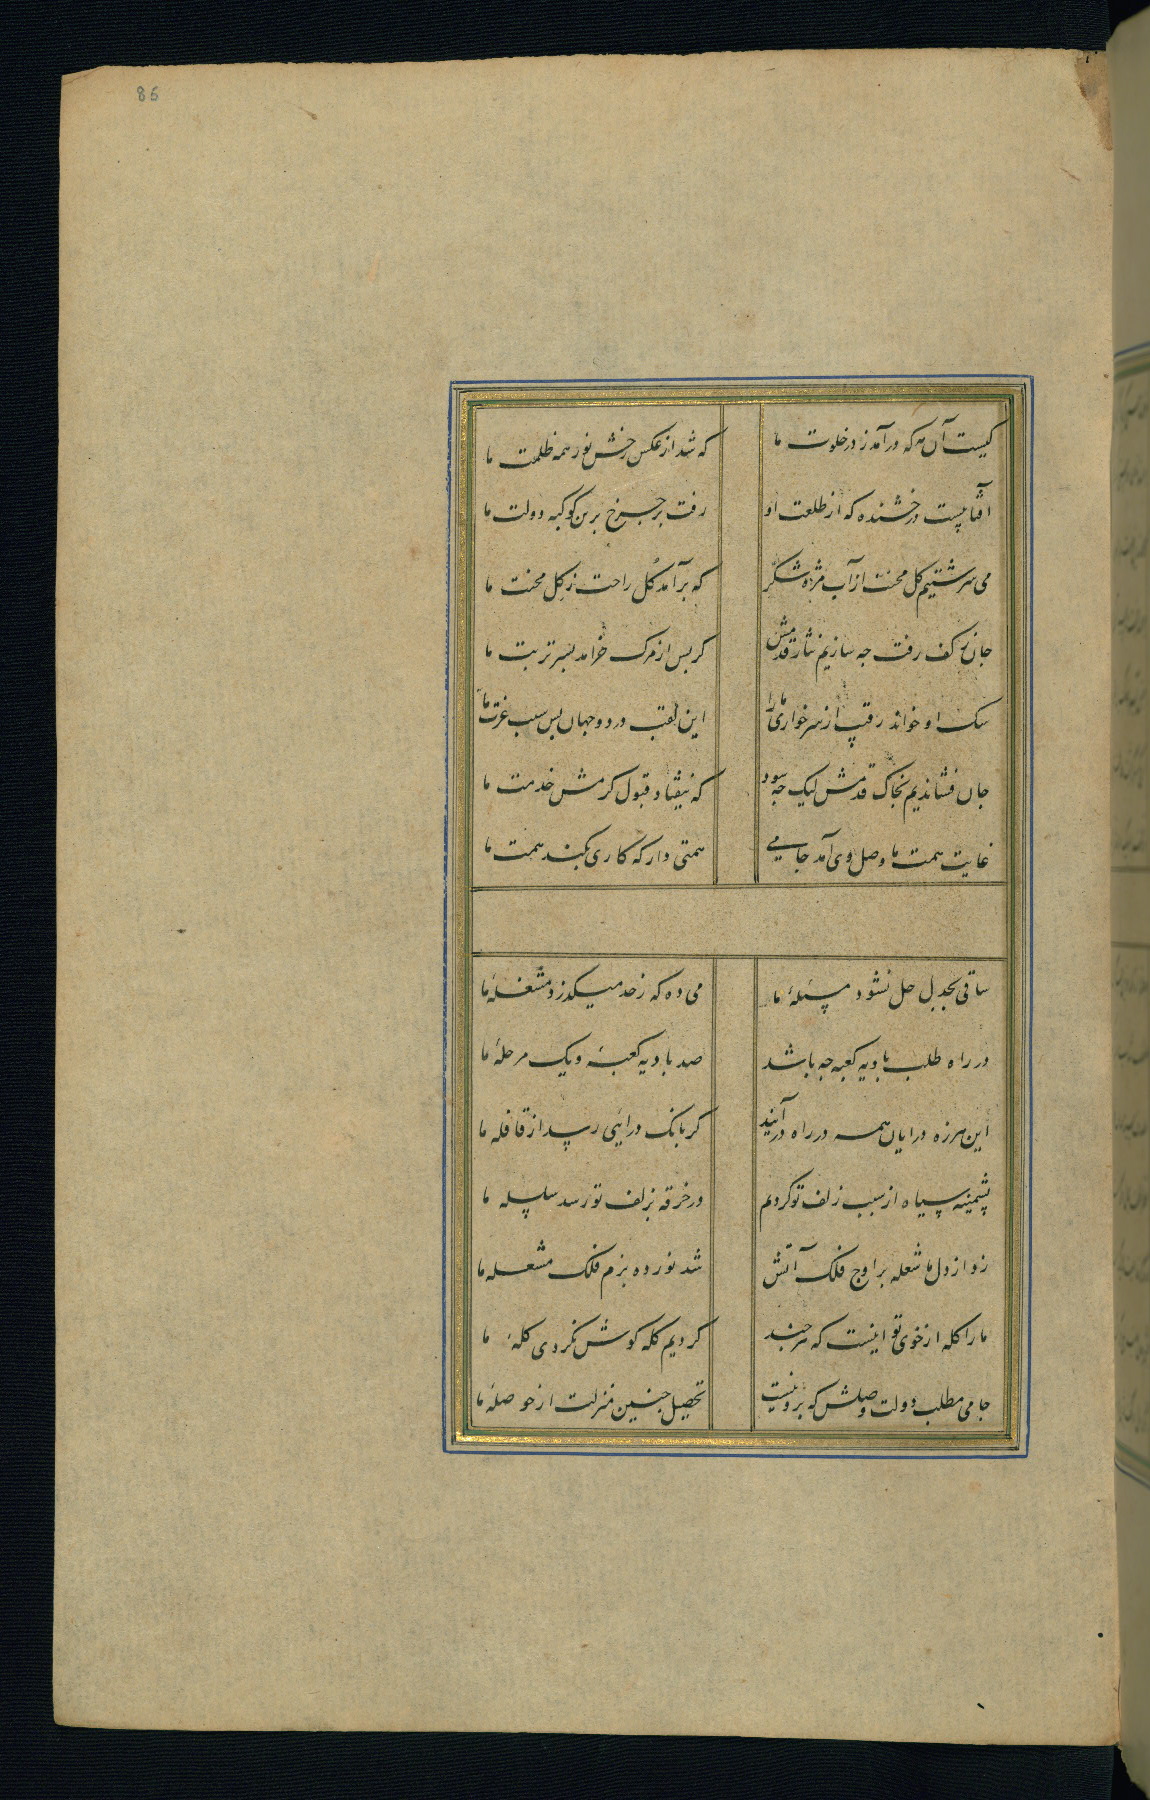 86
کیست آن مه که درآمد ز در خلوت ما
که شد از عکس رخش نور همه ظلمت ما
آفتابیست درخشنده که از طلعت او
رفت بر چرخ برین کوکبه دولت ما
می سرشتیم کل محنت از آب مژه شکر
که برآمد کُل راحت ز کِل محنت ما
جان ز کف رفت جه سازیم نثار قدمش
کر بس از مرک خرامد بسر تربت ما
سک او خواند رقیب از سر خواری ما را
این لقب در دو جهان بس سبب عزت ما
جان فشاندیم بخاک قدمش لیک جه سود
که نیفتاد قبول کرمش خدمت ما
غایت همت ما وصل وی آمد جامی
همتی دار که کاری بکند همت ما
ساقی بجدل حل نشود مسئلهٔ ما
می ده که ز حد میکذرد مشغلهٔ ما
در راه طلب بادیه کعبه جه باشد
صد بادیه کعبه و یک مرحلهٔ ما
این هرزه درایان همه در راه درآیند
کر بانک درایی رسد از قافله ما
پشمینه سیاه از سبب زلف تو کردیم
در خرقه بزلف تو رسد سلسله ما
زد از دل ما شعله بر اوج فلک آتش
شد نور ده بزم فلک مشعله ما
ما را کله از خوی تو اینست که هر جند
کردیم کله کوش نکردی کلهٔ ما
جامی مطلب دولت وصلش که برونیست
تحصیل جنین منزلت از حوصلهٔ ما